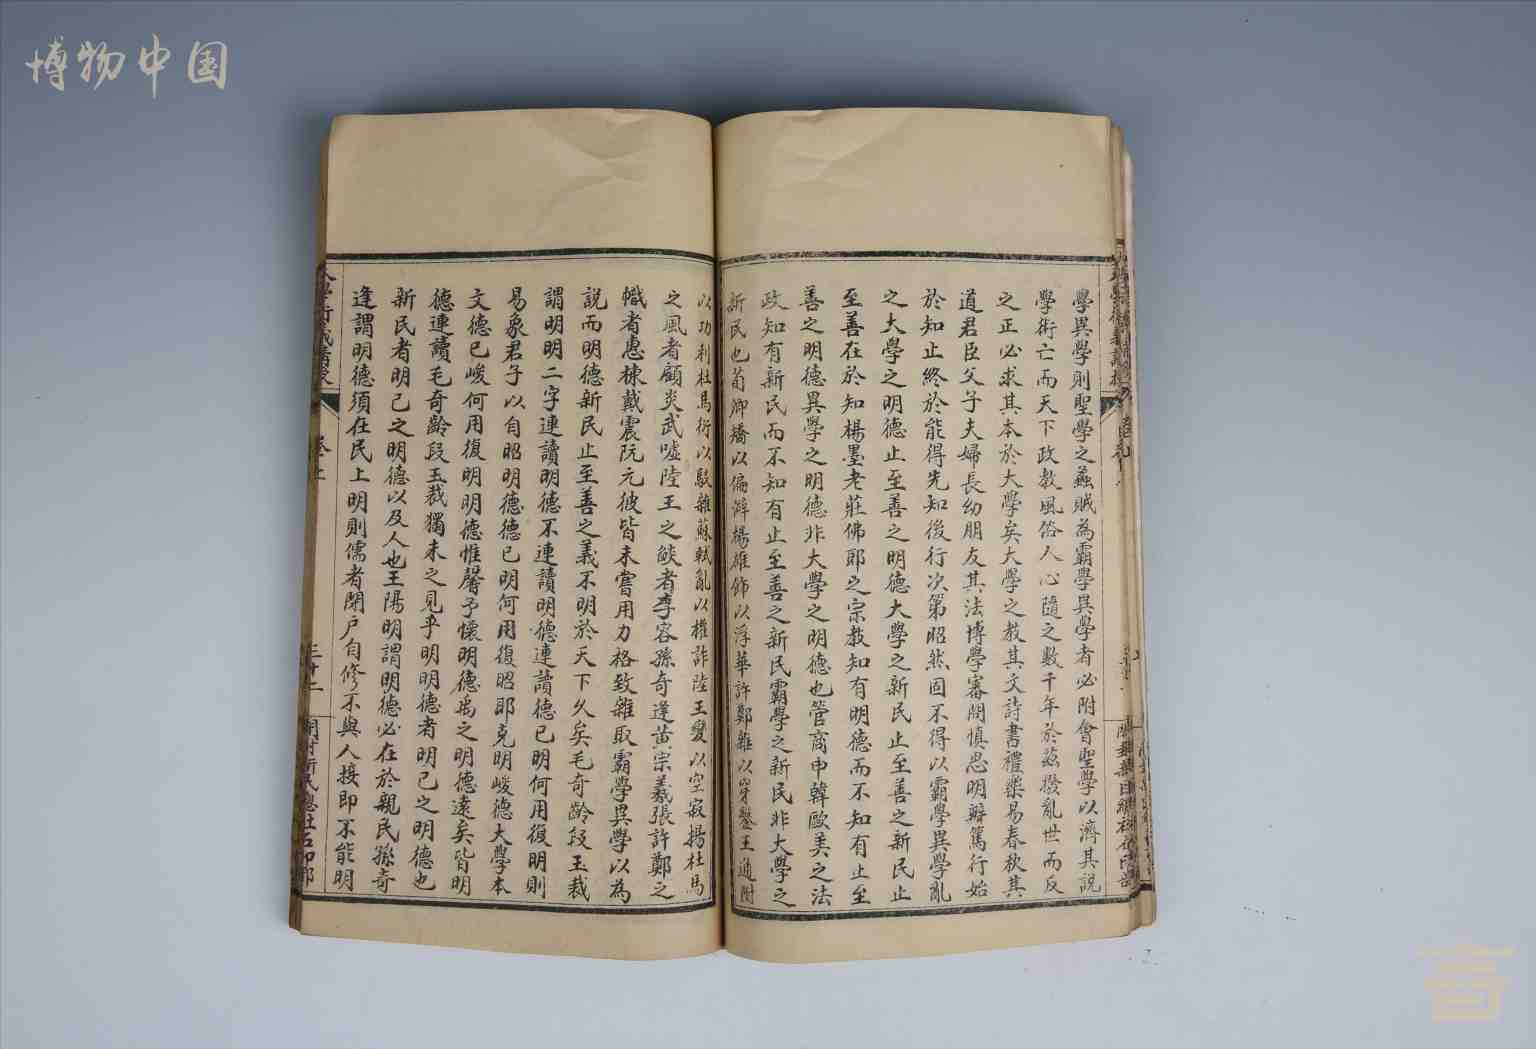 博物中国
學異學則聖學之蟊賊為霸學異學者必附會聖學以濟其説
學術亡而天下政教風俗人心隨之數千年於茲撥亂世而反
之正必求其本於大學矣大學之教其文詩書禮樂易春秋其
道君臣父子夫婦長幼朋友其法博學審問慎思明辯篤行始
於知止終於能得先知後行次第昭然固不得以霸學異學亂
之大學之明德止至善之明德大學之新民止至善之新民止
至善在於知楊墨老莊佛耶之宗教知有明德而不知有止至
善之明德異學之明德非大學之明德也管商申韓歐美之法
政知有新民而不知有止至善之新民霸學之新民非大學之
新民也荀卿矯以偏澼楊雄飾以浮華許鄭雜以穿鑿王通附
以功利杜馬衍以駁雜蘇軾亂以權詐陸王變以空寂揚杜馬
之風者顧炎武噓陸王之燄者李容孫奇逢黄宗羲張許鄭之
幟者惠棟戴震阮元彼皆未嘗用力格致雜取霸學異學以為
説而明德新民止至善之義不明於天下久矣毛奇齡段玉裁
謂明明二字連讀明德不連讀明德連讀德已明何用復明則
易象君子以自昭明德德已明何用復昭耶克明峻德大學本
文德已峻何用復明明德惟馨予懷明德禹之明德遠矣皆明
德連讀毛奇齡段玉裁獨未之見乎明明德者明己之明德也
新民者明己之明德以及人也王陽明謂明德必在於親民孫奇
逢謂明德須在民上明則儒者閉户自修不與人接即不能明
卷上
三十一
開封新民總社石印部